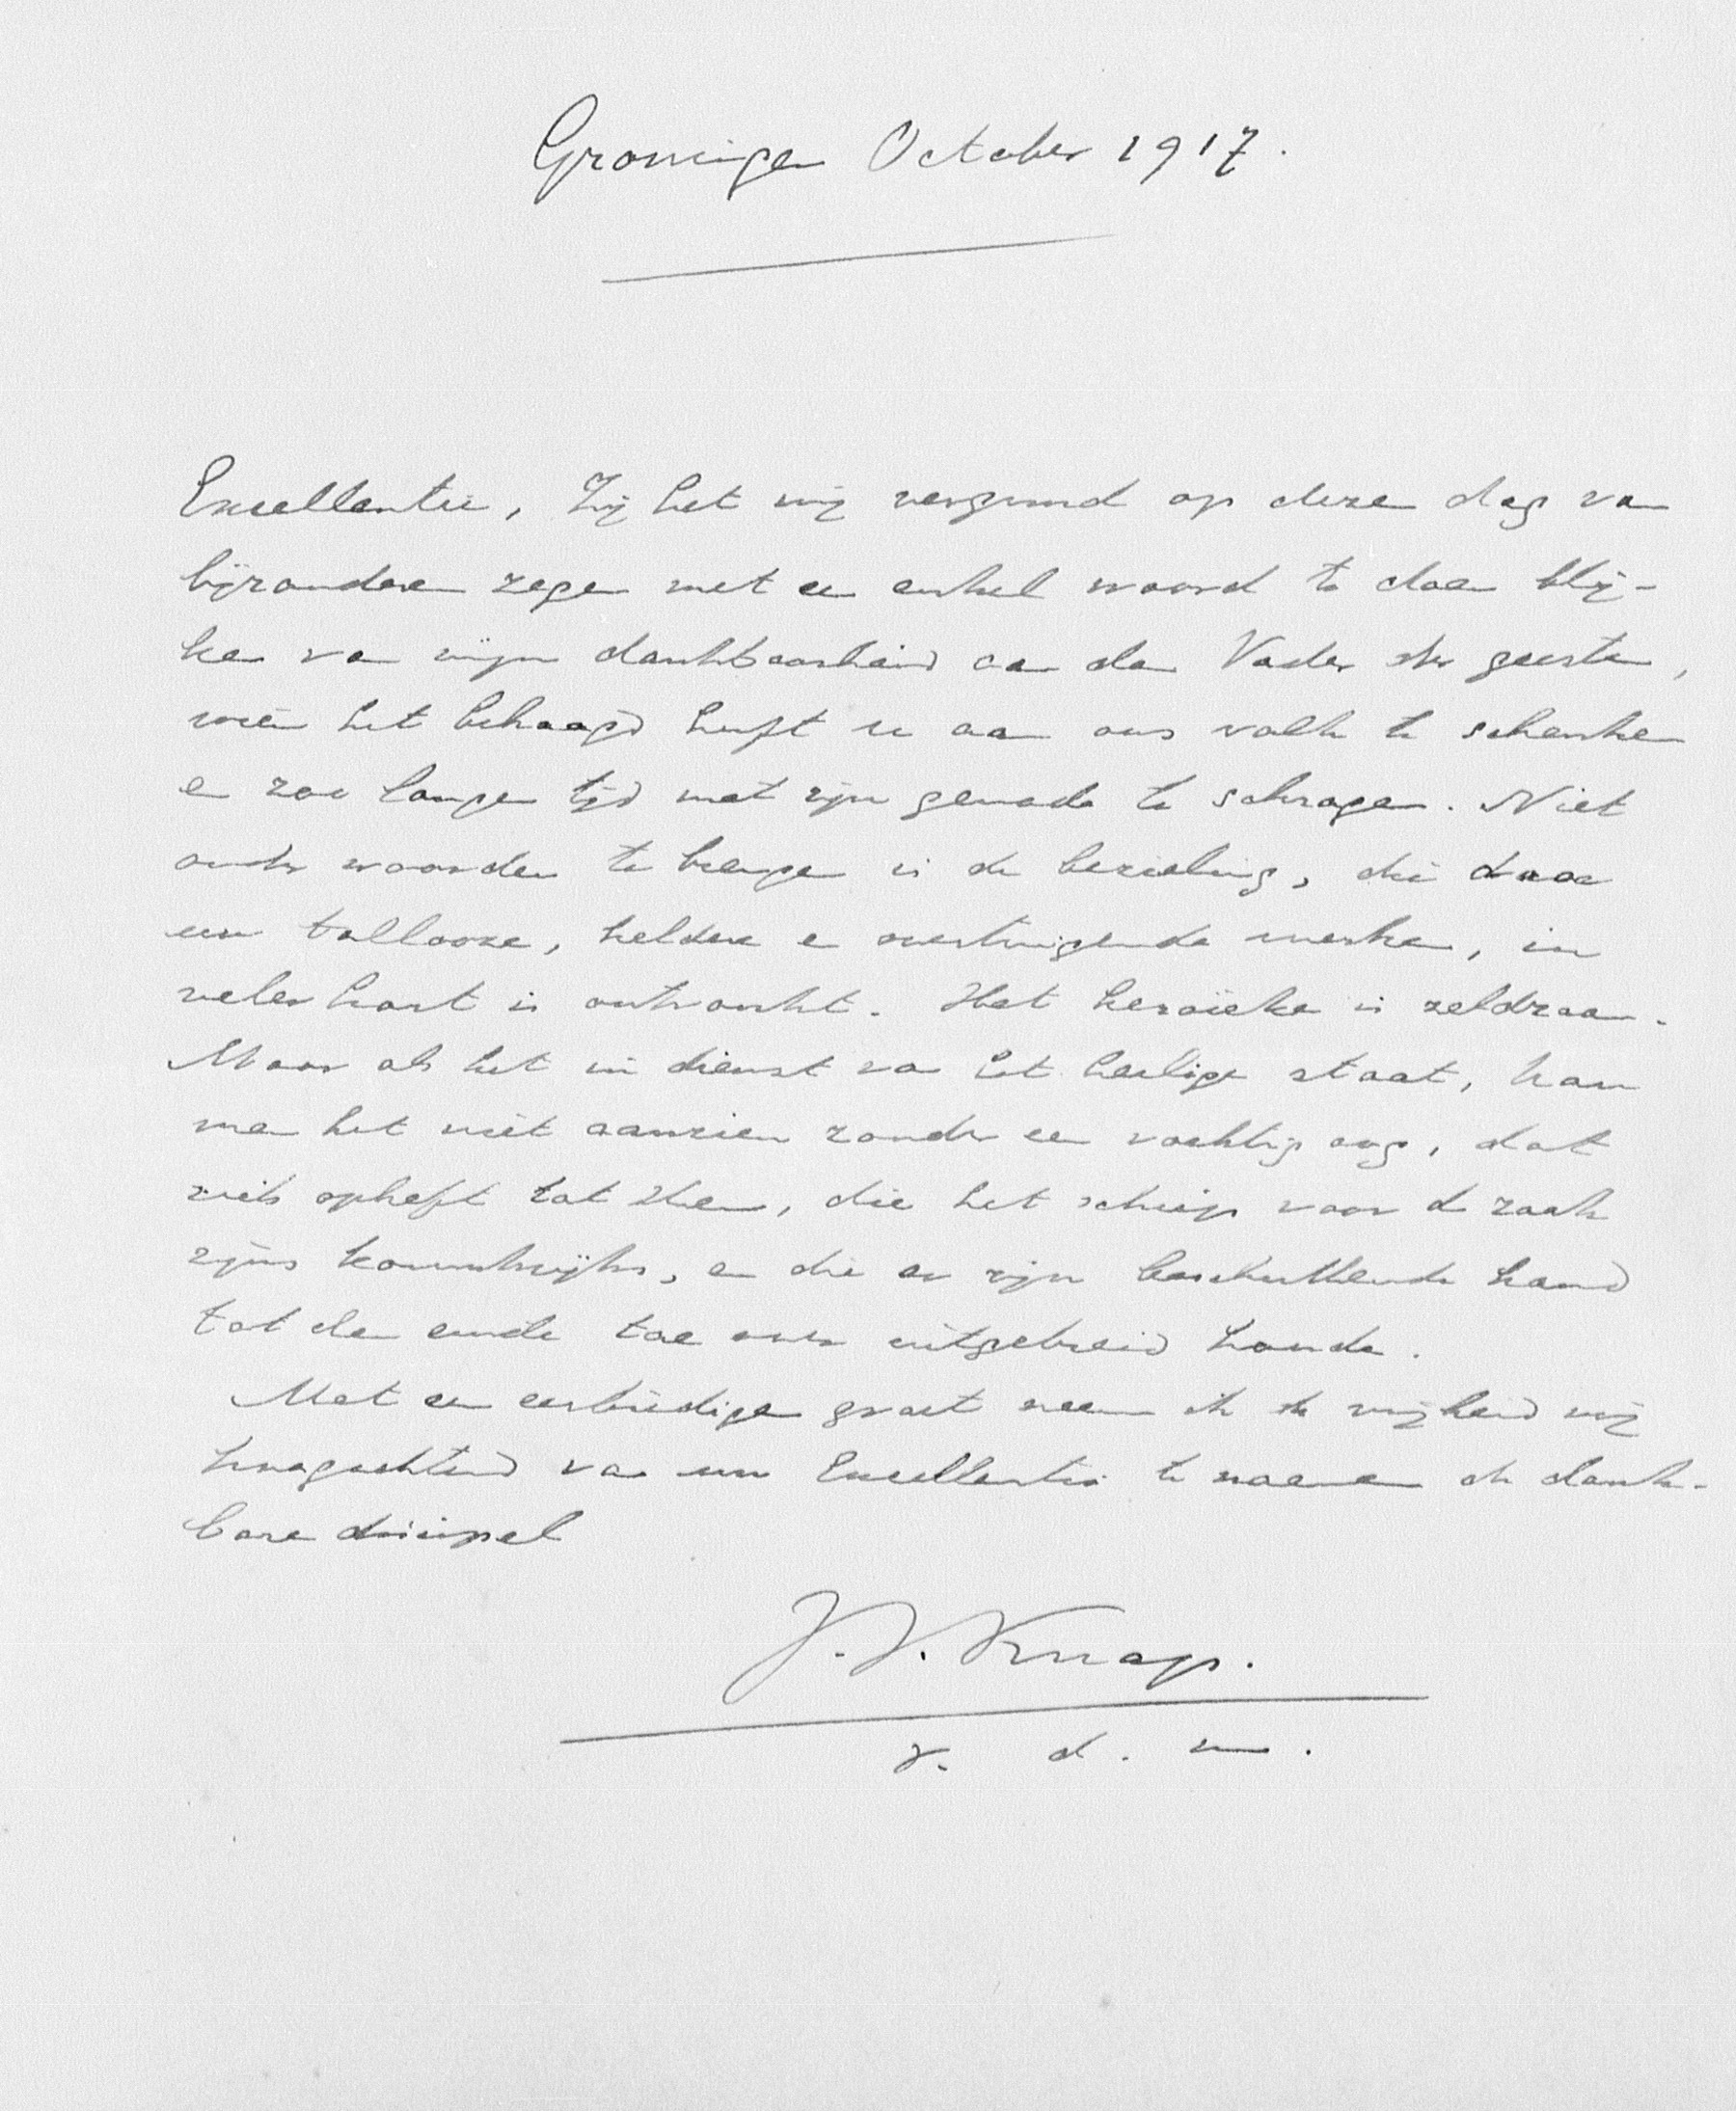 Groningen October 1917.
Excellentie, Zij het mij vergund op dezen dag van
bijzonderen zegen met een enkel woord te doen blij-
ken van mijn dankbaarheid aan den Vader der geesten,
wien het behaagd heeft u aan ons volk te schenken
en zoo langen tijd met zijn genade te schragen. Niet
onder woorden te brengen is de bezieling, die door
uw tallooze, heldere en overtuigende werken, in
veler hart is ontvonkt. Het heroïeke is zeldzaam.
Maar als het in dienst van het heilige staat, kan
men het niet aanzien zonder een vochtig oog, dat
zich opheft tot Hem, die het schiep voor de zaak
zijns koninkrijks, en die er zijn beschuttende hand
tot den einde toe over uitgebreid houde.
Met een eerbiedigen groet neem ik de vrijheid mij
hoogachtend van uw Excellentie te noemen de dank-
bare discipel
J. J. Knap.
v. d. m.